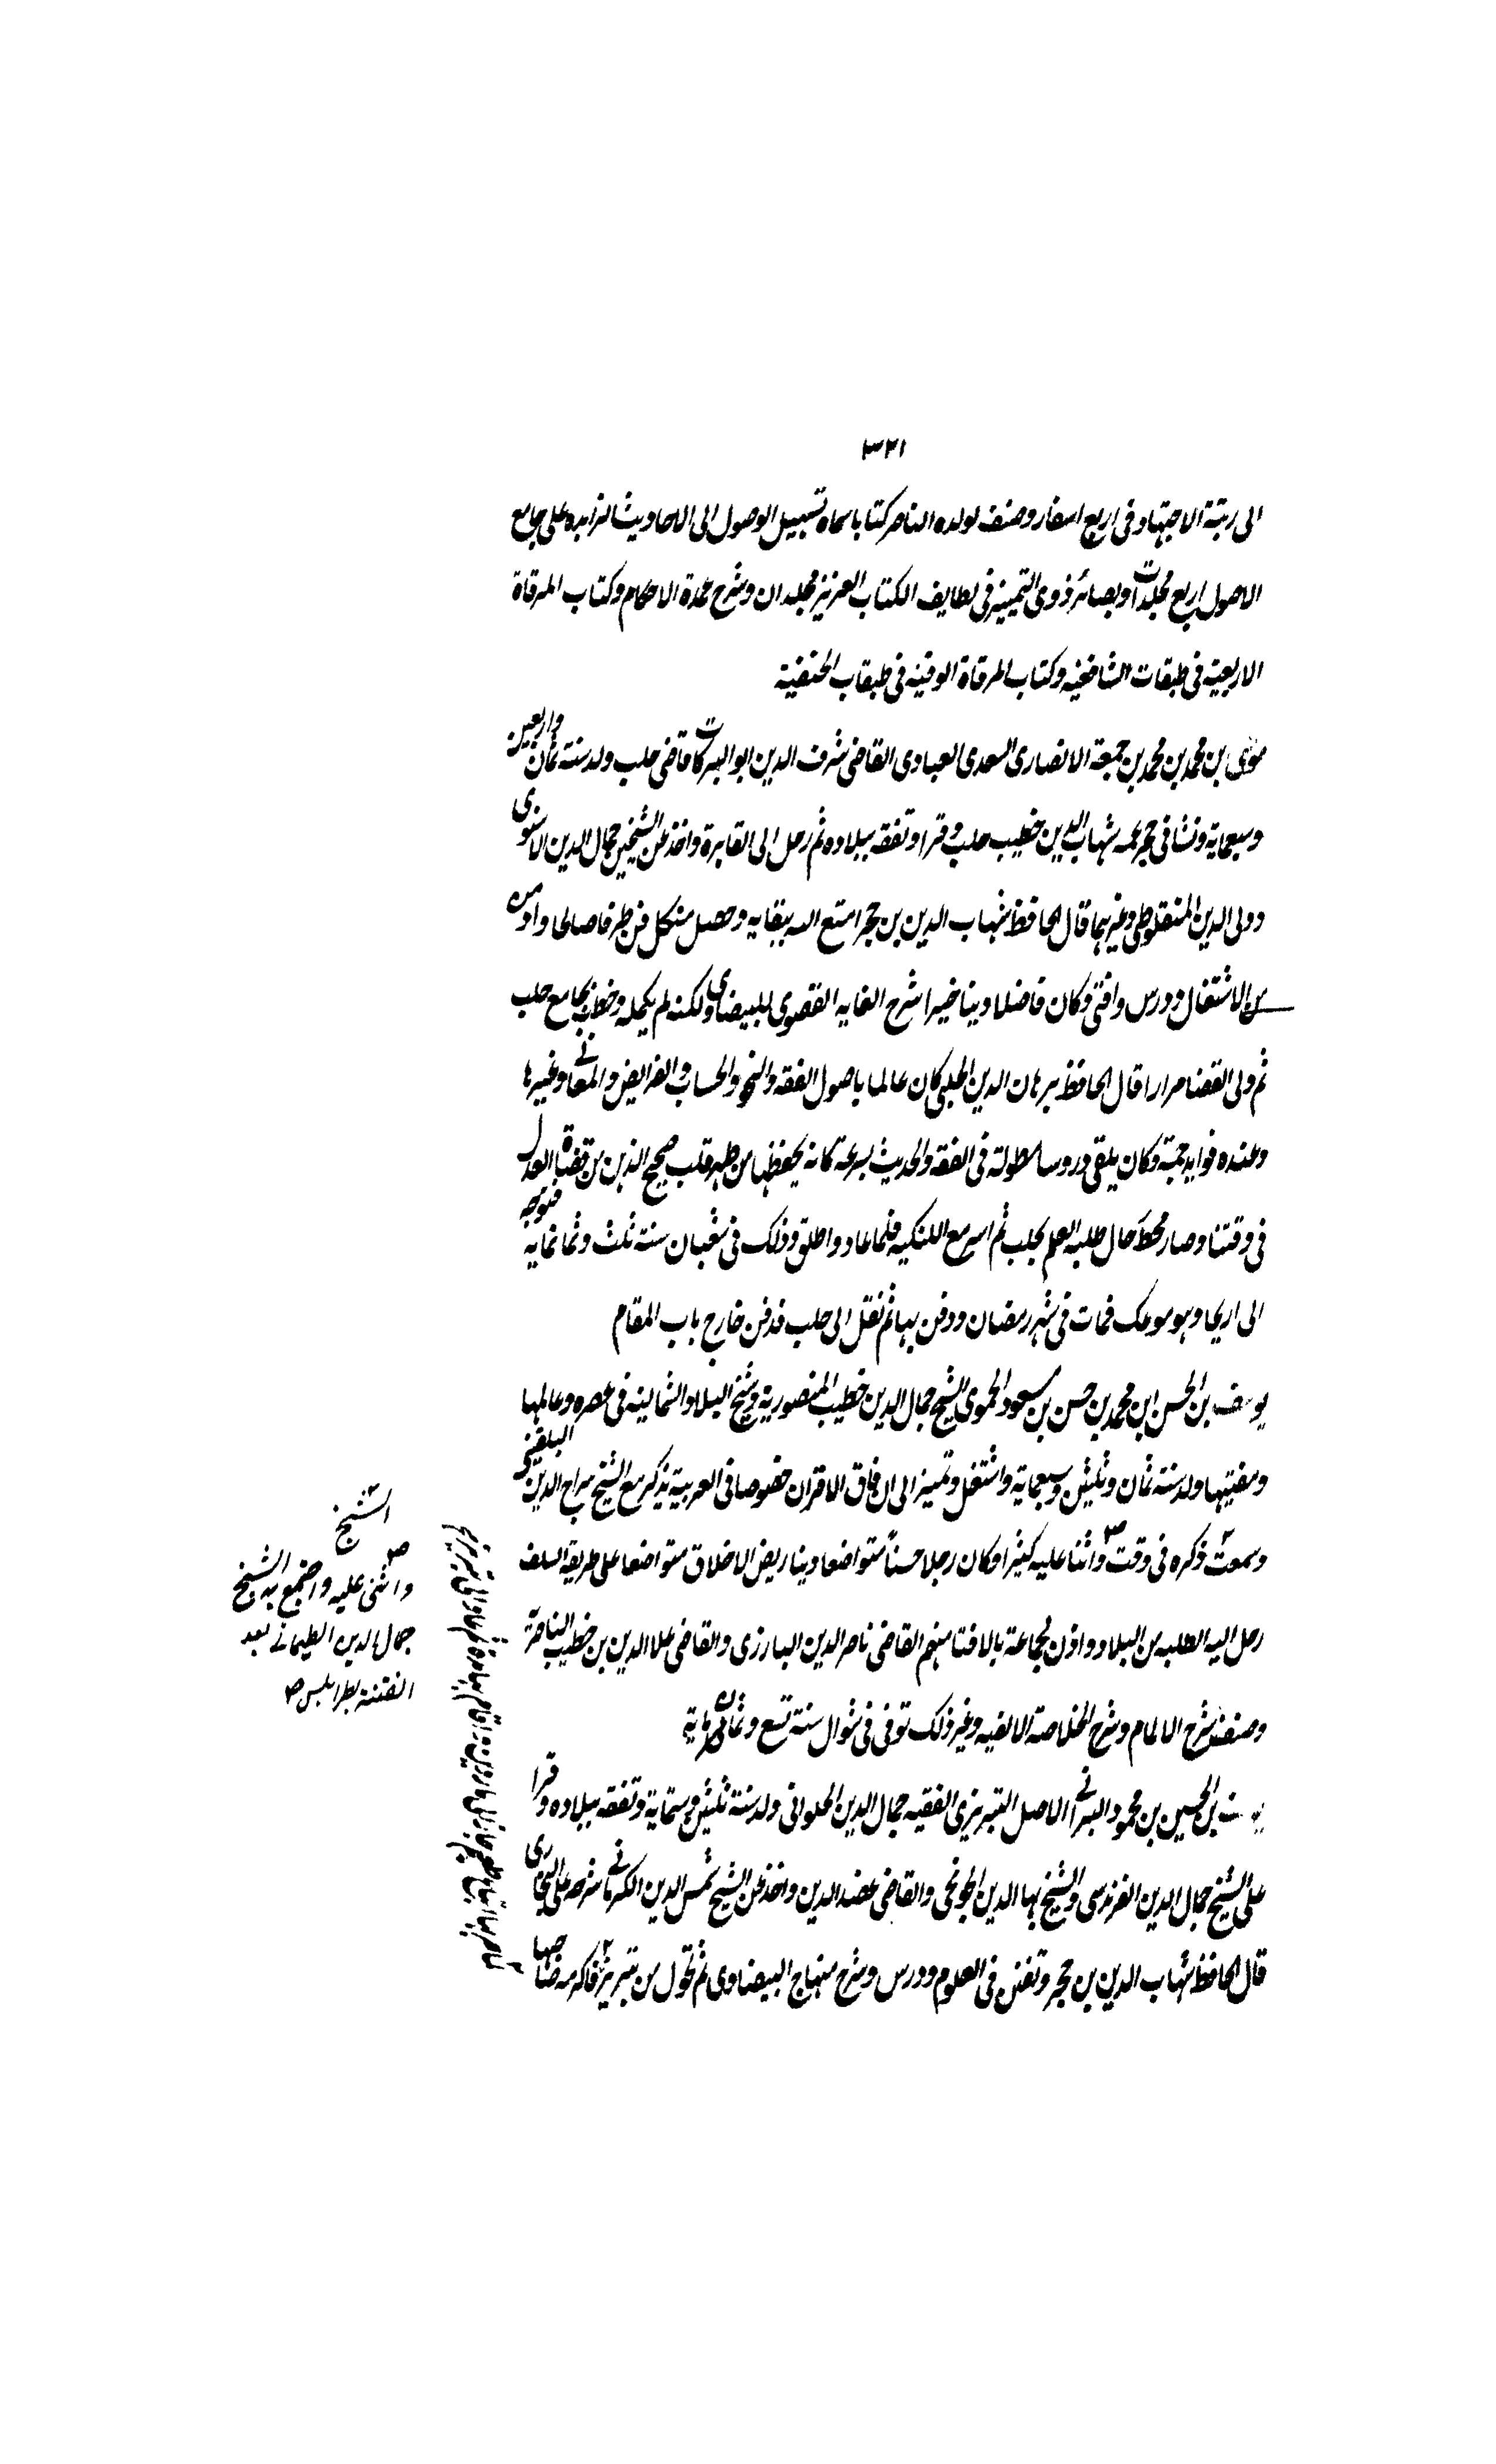 ٣٢١
الى رتبة الاجتهاد فى اربع اسفار وصنف لولده الناصر كتابا سماه تسهيل الوصول الى الاحاديث الزايده على جامع
الاصول اربع مجلدات وبصائر ذوى التمييز فى لطايف الكتاب العزيز مجلدان وشرح عمدة الاحكام وكتاب المرقاة
الاربعية فى طبقات الشافعيه وكتاب المرقاة الوفيه فى طبقات الحنفية
موسى بن محمد بن محمد بن جمعة الانصارى السعدى العبادى القاضى شرف الدين ابو البركات قاضى حلب ولد سنة ثمان واربعين
وسبعماية ونشا فى حجر عمه شهاب الدين خطيب حلب وقرا وتفقه ببلاده ثم رحل الى القاهرة واخذ عن الشيخين جمال الدين الاسنوى
وولى الدين المنفلوطى وغيرهما قال الحافظ شهاب الدين بن حجر امتع الله ببقايه وحصل من كل فن طرفا صالحا وادمن
من الاشتغال ودرس وافتى وكان فاضلا دينا خيرا شرح الغايه القصوى للبيضاوى ولكنه لم يكمله وخطب بجامع حلب
ثم ولى القضا مرارا قال الحافظ برهان الدين الحلبى كان عالما باصول الفقه والنحو والحساب والفرايض والمعانى وغيرها
وعنده فوايد جمة وكان يلقى دروسا مطولة فى الفقه والحديث بسرعة كانه يحفظها من ظهر قلب صحيح الذهن من قضاة العدل
فى وقتنا وصار محط رحال طلبه العلم بحلب ثم اسر مع اللنكيه فلما عاد واطلق وذلك فى شعبان سنة ثلث وثمانمايه فتوجه
الى اريحا وهو موعك فمات فى شهر رمضان ودفن بها ثم نقل الى حلب فدفن خارج باب المقام
يوسف بن الحسن ابن محمد بن حسن بن مسعود الحموى الشيخ جمال الدين خطيب المنصورية وشيخ البلاد الشماليه فى عصره وعالمها
ومفتيها ولد سنة ثمان وثلثين وسبعماية واشتغل وتميز الى ان فاق الاقران خصوصا فى العربية يذكر مع الشيخ سراج الدين البلقينى
وسمعت ذكره فى وقت واثنا عليه كثيرا وكان رجلا حسنا متواضعا دينا ريض الاخلاق متواضعا على طريقة السلف
رحل اليه الطلبه من البلاد واذن لجماعة بالافتا منهم القاضى ناصر الدين البارزى والقاضى علا الدين بن خطيب الناصرية
وصنف شرح الالمام وشرح الخلاصة الالفيه وغير ذلك توفى فى شوال سنة تسع وثمانى ماية
بن الحسين بن محمود الاصل التبريزى الفقيه جمال الدين الحلوانى ولد سنة ثلثين وستماية وتفقه ببلاده وقرا
على الشيخ جمال الدين والشيخ بها الدين الخونجى والقاضى عضد الدين واخذ عن الشيخ شمس الدين الكرمانى شرحه على البخارى
قال الحافظ شهاب الدين بن حجر وتفنن فى العلوم ودرس وشرح منهاج البيضاوى ثم تحول من تبريز فاكرمه صاحبها
الشيخ
واثنى عليه واجتمع به الشيخ
جمال الدين الطيمانى بعد
الفتنة بطرابلس صح